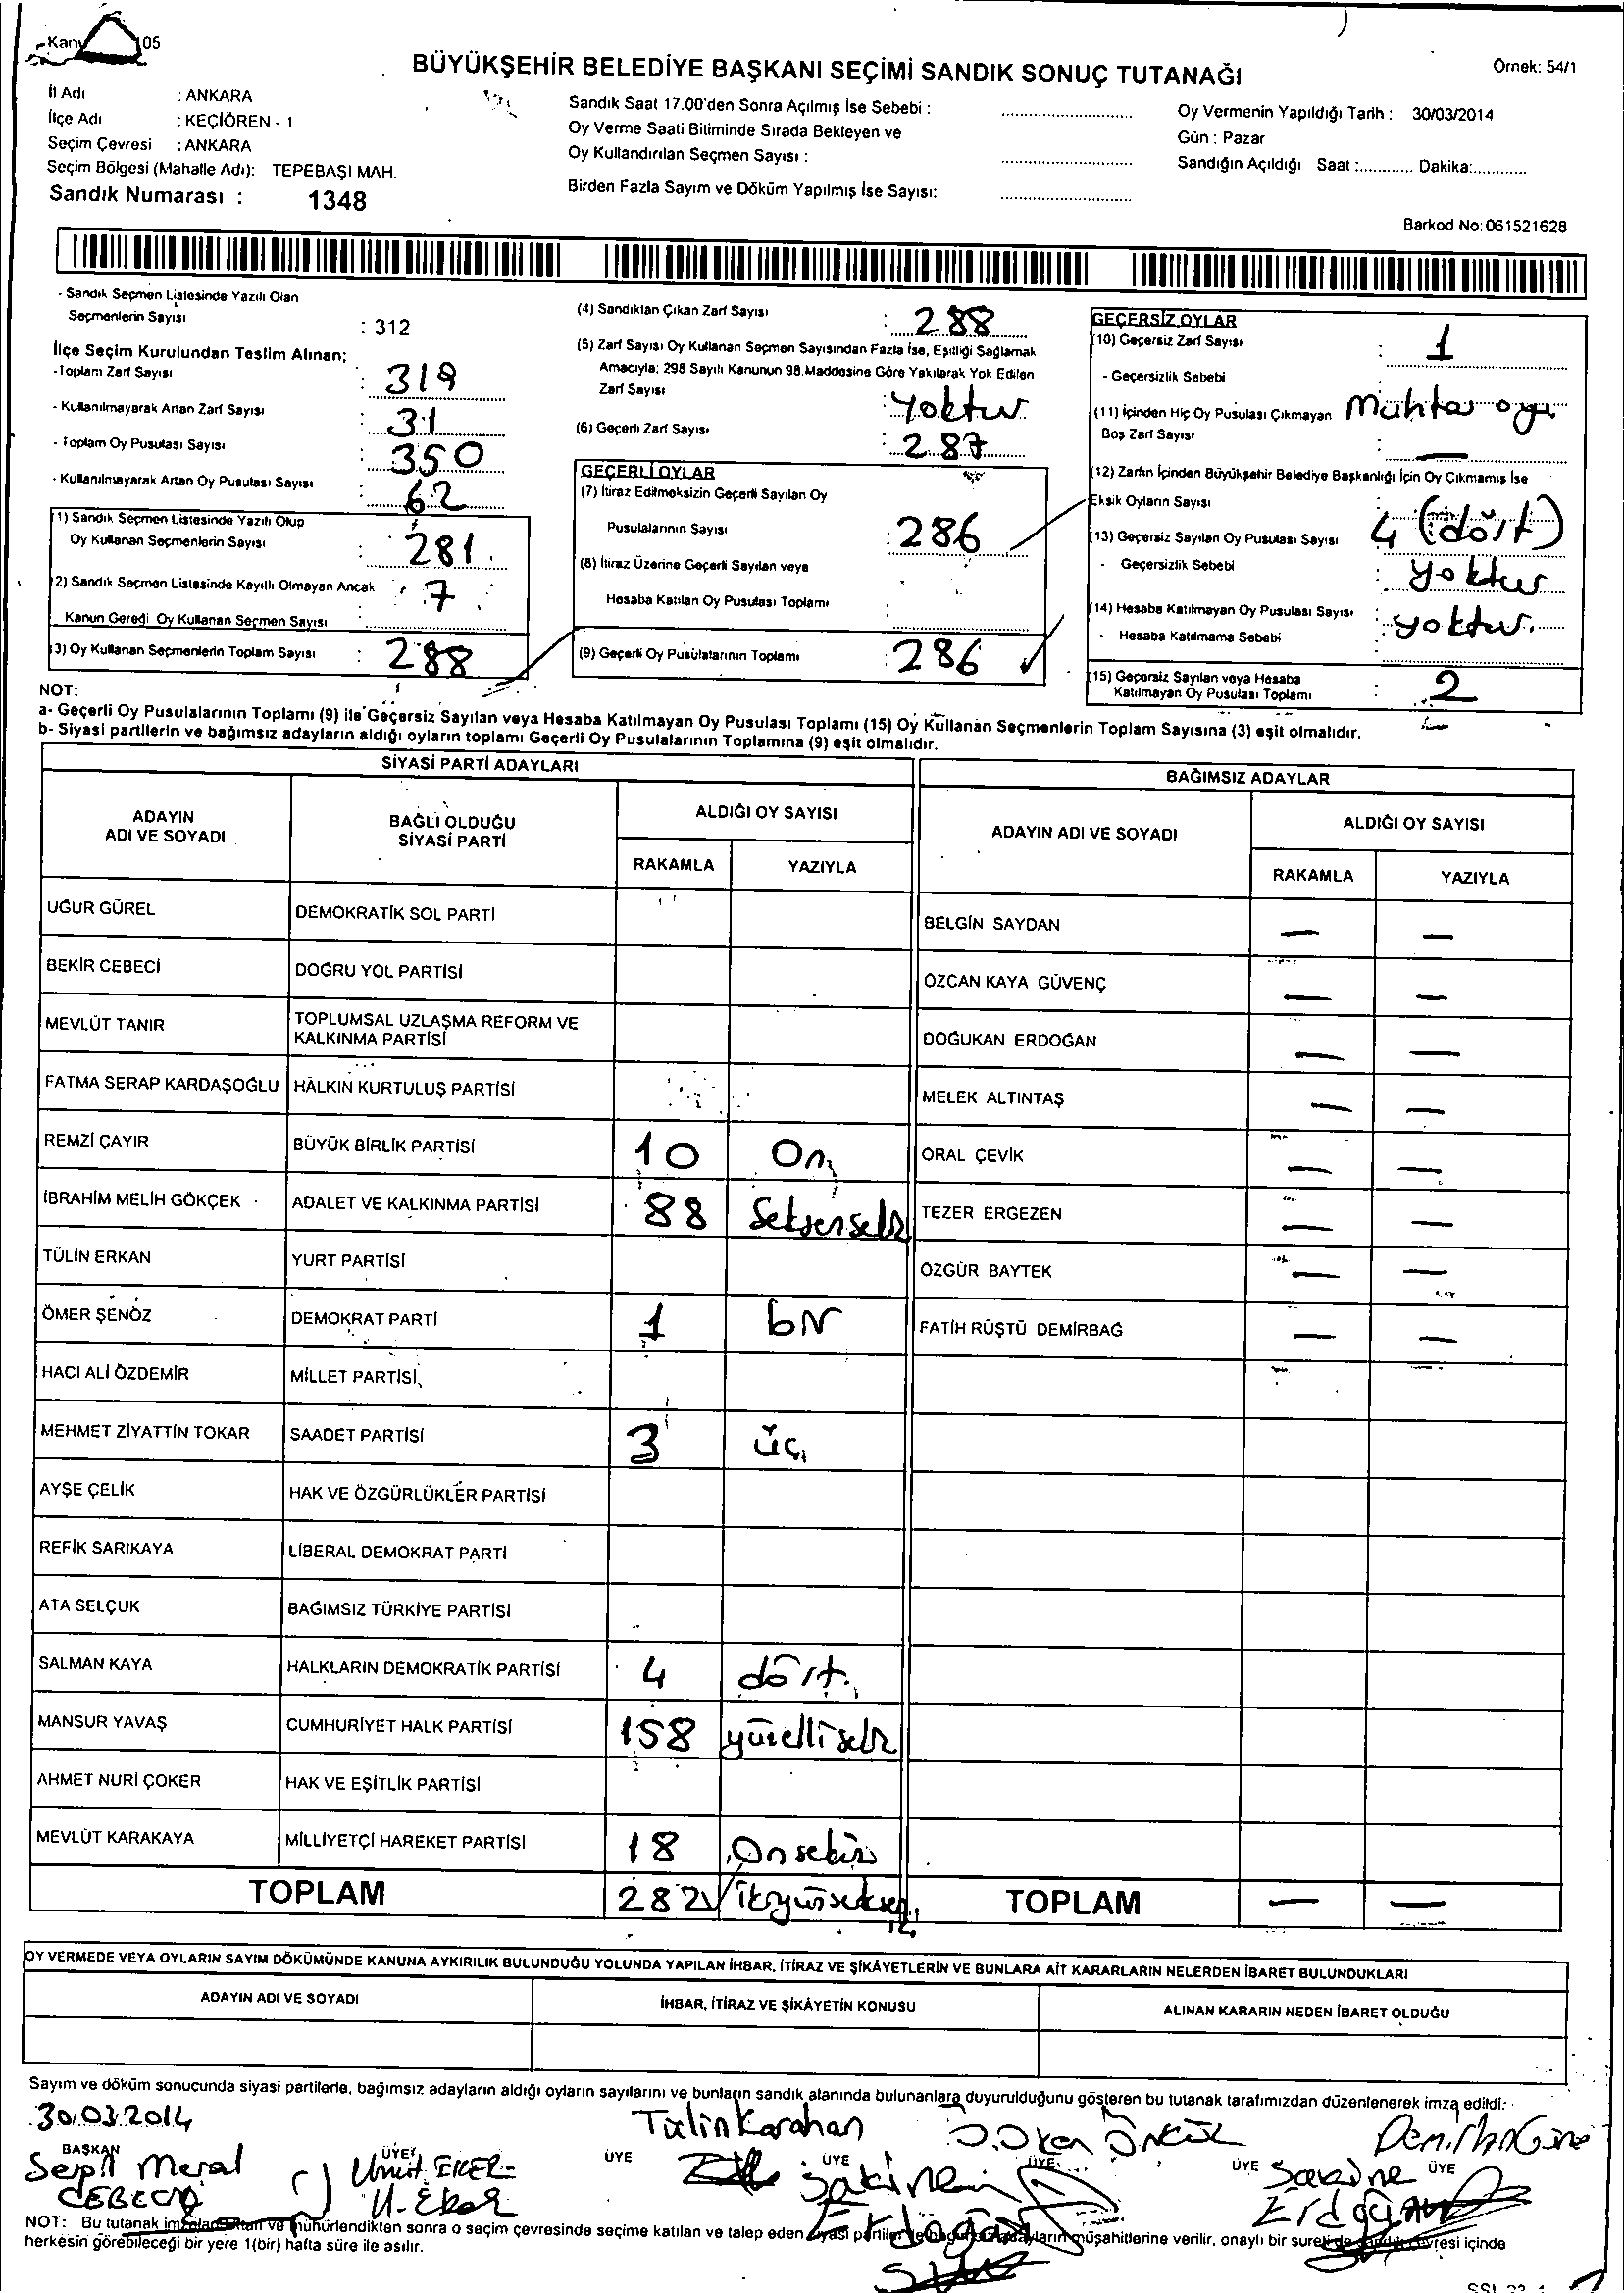 Kan 05
BÜYÜKŞEHİR BELEDİYE BAŞKANI SEÇİMİ SANDIK SONUÇ TUTANAĞI
Örnek: 54/1
İl Adı : ANKARA
İlçe Adı : KEÇİÖREN - 1
Seçim Çevresi : ANKARA
Seçim Bölgesi (Mahalle Adı): TEPEBAŞI MAH.
Sandık Numarası : 1348
Sandık Saat 17.00'den Sonra Açılmış İse Sebebi :
Oy Verme Saati Bitiminde Sırada Bekleyen ve
Oy Kullandırılan Seçmen Sayısı :
Birden Fazla Sayım ve Döküm Yapılmış İse Sayısı:
Oy Vermenin Yapıldığı Tarih : 30/03/2014
Gün : Pazar
Sandığın Açıldığı Saat :............ Dakika:............
Barkod No: 061521628
- Sandık Seçmen Listesinde Yazılı Olan
Seçmenlerin Sayısı : 312
İlçe Seçim Kurulundan Teslim Alınan;
- Toplam Zarf Sayısı : 319
- Kullanılmayarak Artan Zarf Sayısı : 31
- Toplam Oy Pusulası Sayısı : 350
- Kullanılmayarak Artan Oy Pusulası Sayısı : 62
(1) Sandık Seçmen Listesinde Yazılı Olup
Oy Kullanan Seçmenlerin Sayısı : 281
(2) Sandık Seçmen Listesinde Kayıtlı Olmayan Ancak
Kanun Gereği Oy Kullanan Seçmen Sayısı : 7
(3) Oy Kullanan Seçmenlerin Toplam Sayısı : 288
(4) Sandıktan Çıkan Zarf Sayısı : 288
(5) Zarf Sayısı Oy Kullanan Seçmen Sayısından Fazla İse, Eşitliği Sağlamak
Amacıyla; 298 Sayılı Kanunun 98.Maddesine Göre Yakılarak Yok Edilen
Zarf Sayısı : Yoktur
(6) Geçerli Zarf Sayısı : 287
GEÇERLİ OYLAR
(7) İtiraz Edilmeksizin Geçerli Sayılan Oy
Pusulalarının Sayısı : 286
(8) İtiraz Üzerine Geçerli Sayılan veya
Hesaba Katılan Oy Pusulası Toplamı :
(9) Geçerli Oy Pusulalarının Toplamı : 286
GEÇERSİZ OYLAR
(10) Geçersiz Zarf Sayısı : 1
- Geçersizlik Sebebi Muhtar oyu
(11) İçinden Hiç Oy Pusulası Çıkmayan
Boş Zarf Sayısı : —
(12) Zarfın İçinden Büyükşehir Belediye Başkanlığı İçin Oy Çıkmamış İse
Eksik Oyların Sayısı
4 (dört)
(13) Geçersiz Sayılan Oy Pusulası Sayısı
- Geçersizlik Sebebi : yoktur
(14) Hesaba Katılmayan Oy Pusulası Sayısı : yoktur.
- Hesaba Katılmama Sebebi
(15) Geçersiz Sayılan veya Hesaba
Katılmayan Oy Pusulası Toplamı : 2
NOT:
a- Geçerli Oy Pusulalarının Toplamı (9) ile Geçersiz Sayılan veya Hesaba Katılmayan Oy Pusulası Toplamı (15) Oy Kullanan Seçmenlerin Toplam Sayısına (3) eşit olmalıdır.
b- Siyasi partilerin ve bağımsız adayların aldığı oyların toplamı Geçerli Oy Pusulalarının Toplamına (9) eşit olmalıdır.
SİYASİ PARTİ ADAYLARI
ADAYIN ADI VE SOYADI
BAĞLI OLDUĞU SİYASİ PARTİ
ALDIĞI OY SAYISI
RAKAMLA YAZIYLA
UĞUR GÜREL DEMOKRATİK SOL PARTİ
BEKİR CEBECİ DOĞRU YOL PARTİSİ
MEVLÜT TANIR TOPLUMSAL UZLAŞMA REFORM VE
KALKINMA PARTİSİ
FATMA SERAP KARDAŞOĞLU HALKIN KURTULUŞ PARTİSİ
REMZİ ÇAYIR BÜYÜK BİRLİK PARTİSİ 10 On
İBRAHİM MELİH GÖKÇEK ADALET VE KALKINMA PARTİSİ 88 Seksensekiz
TÜLİN ERKAN YURT PARTİSİ
ÖMER ŞENÖZ DEMOKRAT PARTİ 1 bir
HACI ALİ ÖZDEMİR MİLLET PARTİSİ
MEHMET ZİYATTİN TOKAR SAADET PARTİSİ 3 üç
AYŞE ÇELİK HAK VE ÖZGÜRLÜKLER PARTİSİ
REFİK SARIKAYA LİBERAL DEMOKRAT PARTİ
ATA SELÇUK BAĞIMSIZ TÜRKİYE PARTİSİ
SALMAN KAYA HALKLARIN DEMOKRATİK PARTİSİ 4 dört.
MANSUR YAVAŞ CUMHURİYET HALK PARTİSİ 158 yüzellisekiz
AHMET NURİ ÇOKER HAK VE EŞİTLİK PARTİSİ
MEVLÜT KARAKAYA MİLLİYETÇİ HAREKET PARTİSİ 18 Onsekiz
TOPLAM 282 ikiyüzseksen
BAĞIMSIZ ADAYLAR
ADAYIN ADI VE SOYADI
ALDIĞI OY SAYISI
RAKAMLA YAZIYLA
BELGİN SAYDAN — —
ÖZCAN KAYA GÜVENÇ — —
DOĞUKAN ERDOĞAN — —
MELEK ALTINTAŞ — —
ORAL ÇEVİK — —
TEZER ERGEZEN — —
ÖZGÜR BAYTEK — —
FATİH RÜŞTÜ DEMİRBAĞ — —
TOPLAM — —
OY VERMEDE VEYA OYLARIN SAYIM DÖKÜMÜNDE KANUNA AYKIRILIK BULUNDUĞU YOLUNDA YAPILAN İHBAR, İTİRAZ VE ŞİKÂYETLERİN VE BUNLARA AİT KARARLARIN NELERDEN İBARET BULUNDUKLARI
ADAYIN ADI VE SOYADI İHBAR, İTİRAZ VE ŞİKÂYETİN KONUSU ALINAN KARARIN NEDEN İBARET OLDUĞU
Sayım ve döküm sonucunda siyasi partilerle, bağımsız adayların aldığı oyların sayılarını ve bunların sandık alanında bulunanlara duyurulduğunu gösteren bu tutanak tarafımızdan düzenlenerek imza edildi:
30.03.2014
BAŞKAN ÜYE ÜYE ÜYE ÜYE ÜYE ÜYE
Meral
CEBECİ
Umut EKER
U. Eker
Tülin Karahan
Sakine
Erdoğan
Sakine
NOT: Bu tutanak ve mühürlendikten sonra o seçim çevresinde seçime katılan ve talep eden siyasi müşahitlerine verilir, onaylı bir sureti de içinde
herkesin görebileceği bir yere 1(bir) hafta süre ile asılır.